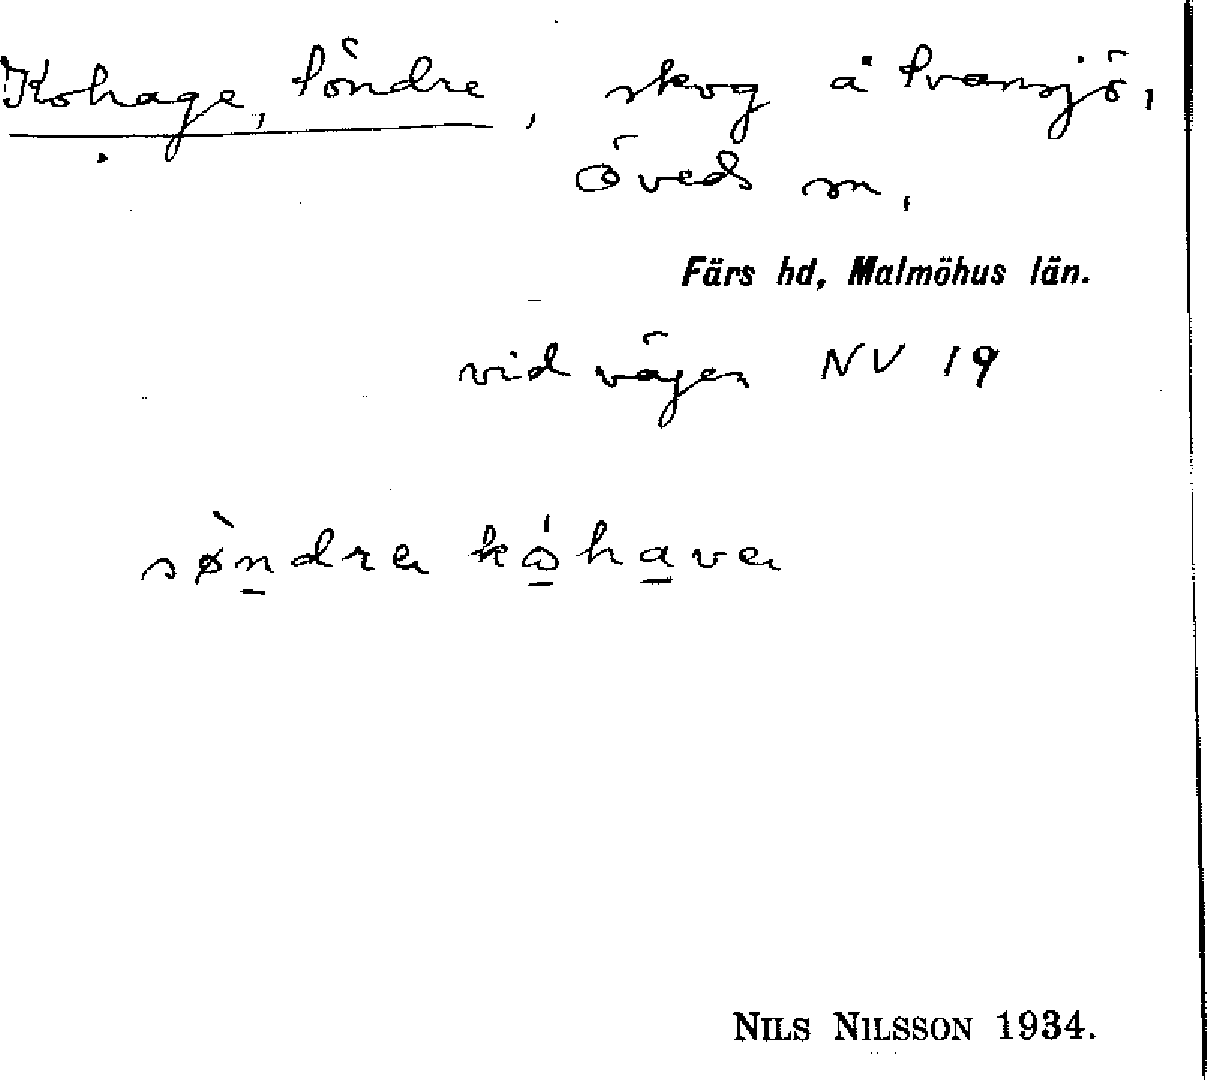 Kohage, Söndre, skog å Svansjö,
Öveds sn,
Färs hd, Malmöhus län.
vid vägen NV 19
sø̀ndra kåhava
NILS NILSSON 1934.